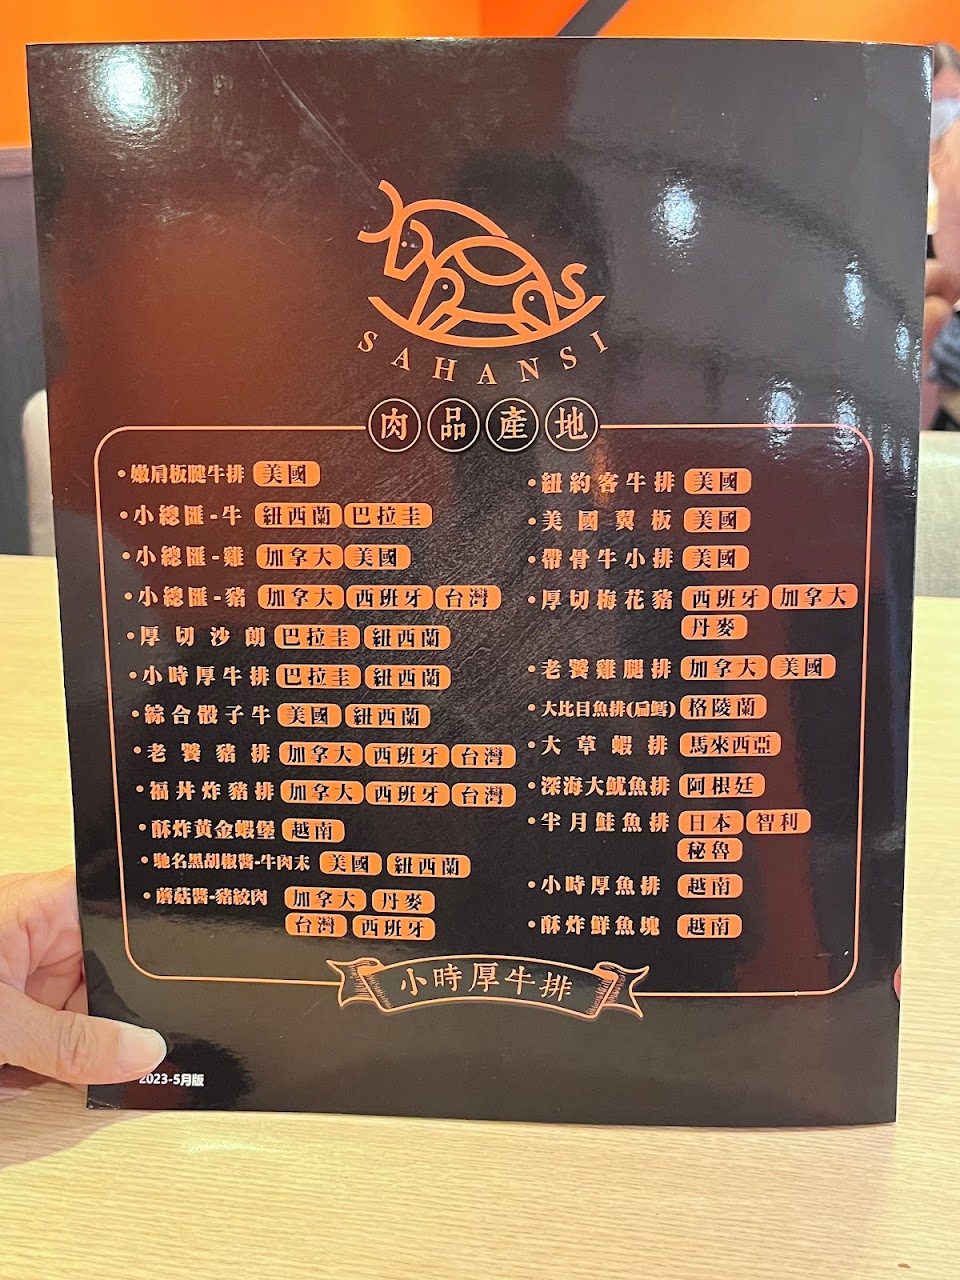 SAHANSI
肉品產地
•嫩肩板腱牛排 美國
•小總匯-牛 紐西蘭 巴拉圭
•小總匯-雞 加拿大 美國
•小總匯-豬 加拿大 西班牙 台灣
•厚切沙朗 巴拉圭 紐西蘭
•小時厚牛排 巴拉圭 紐西蘭
•綜合骰子牛 美國 紐西蘭
•老饕豬排 加拿大 西班牙 台灣
•福丼炸豬排 加拿大 西班牙 台灣
•酥炸黃金蝦堡 越南
•馳名黑胡椒醬-牛肉末 美國 紐西蘭
•蘑菇醬-豬絞肉 加拿大 丹麥
台灣 西班牙
•紐約客牛排 美國
•美國翼板 美國
•帶骨牛小排 美國
•厚切梅花豬 西班牙 加拿大
丹麥
•老饕雞腿排 加拿大 美國
•大比目魚排(扁鱈) 格陵蘭
•大草蝦排 馬來西亞
•深海大魷魚排 阿根廷
•半月鮭魚排 日本 智利
秘魯
•小時厚魚排 越南
•酥炸鮮魚塊 越南
小時厚牛排
2023-5月版